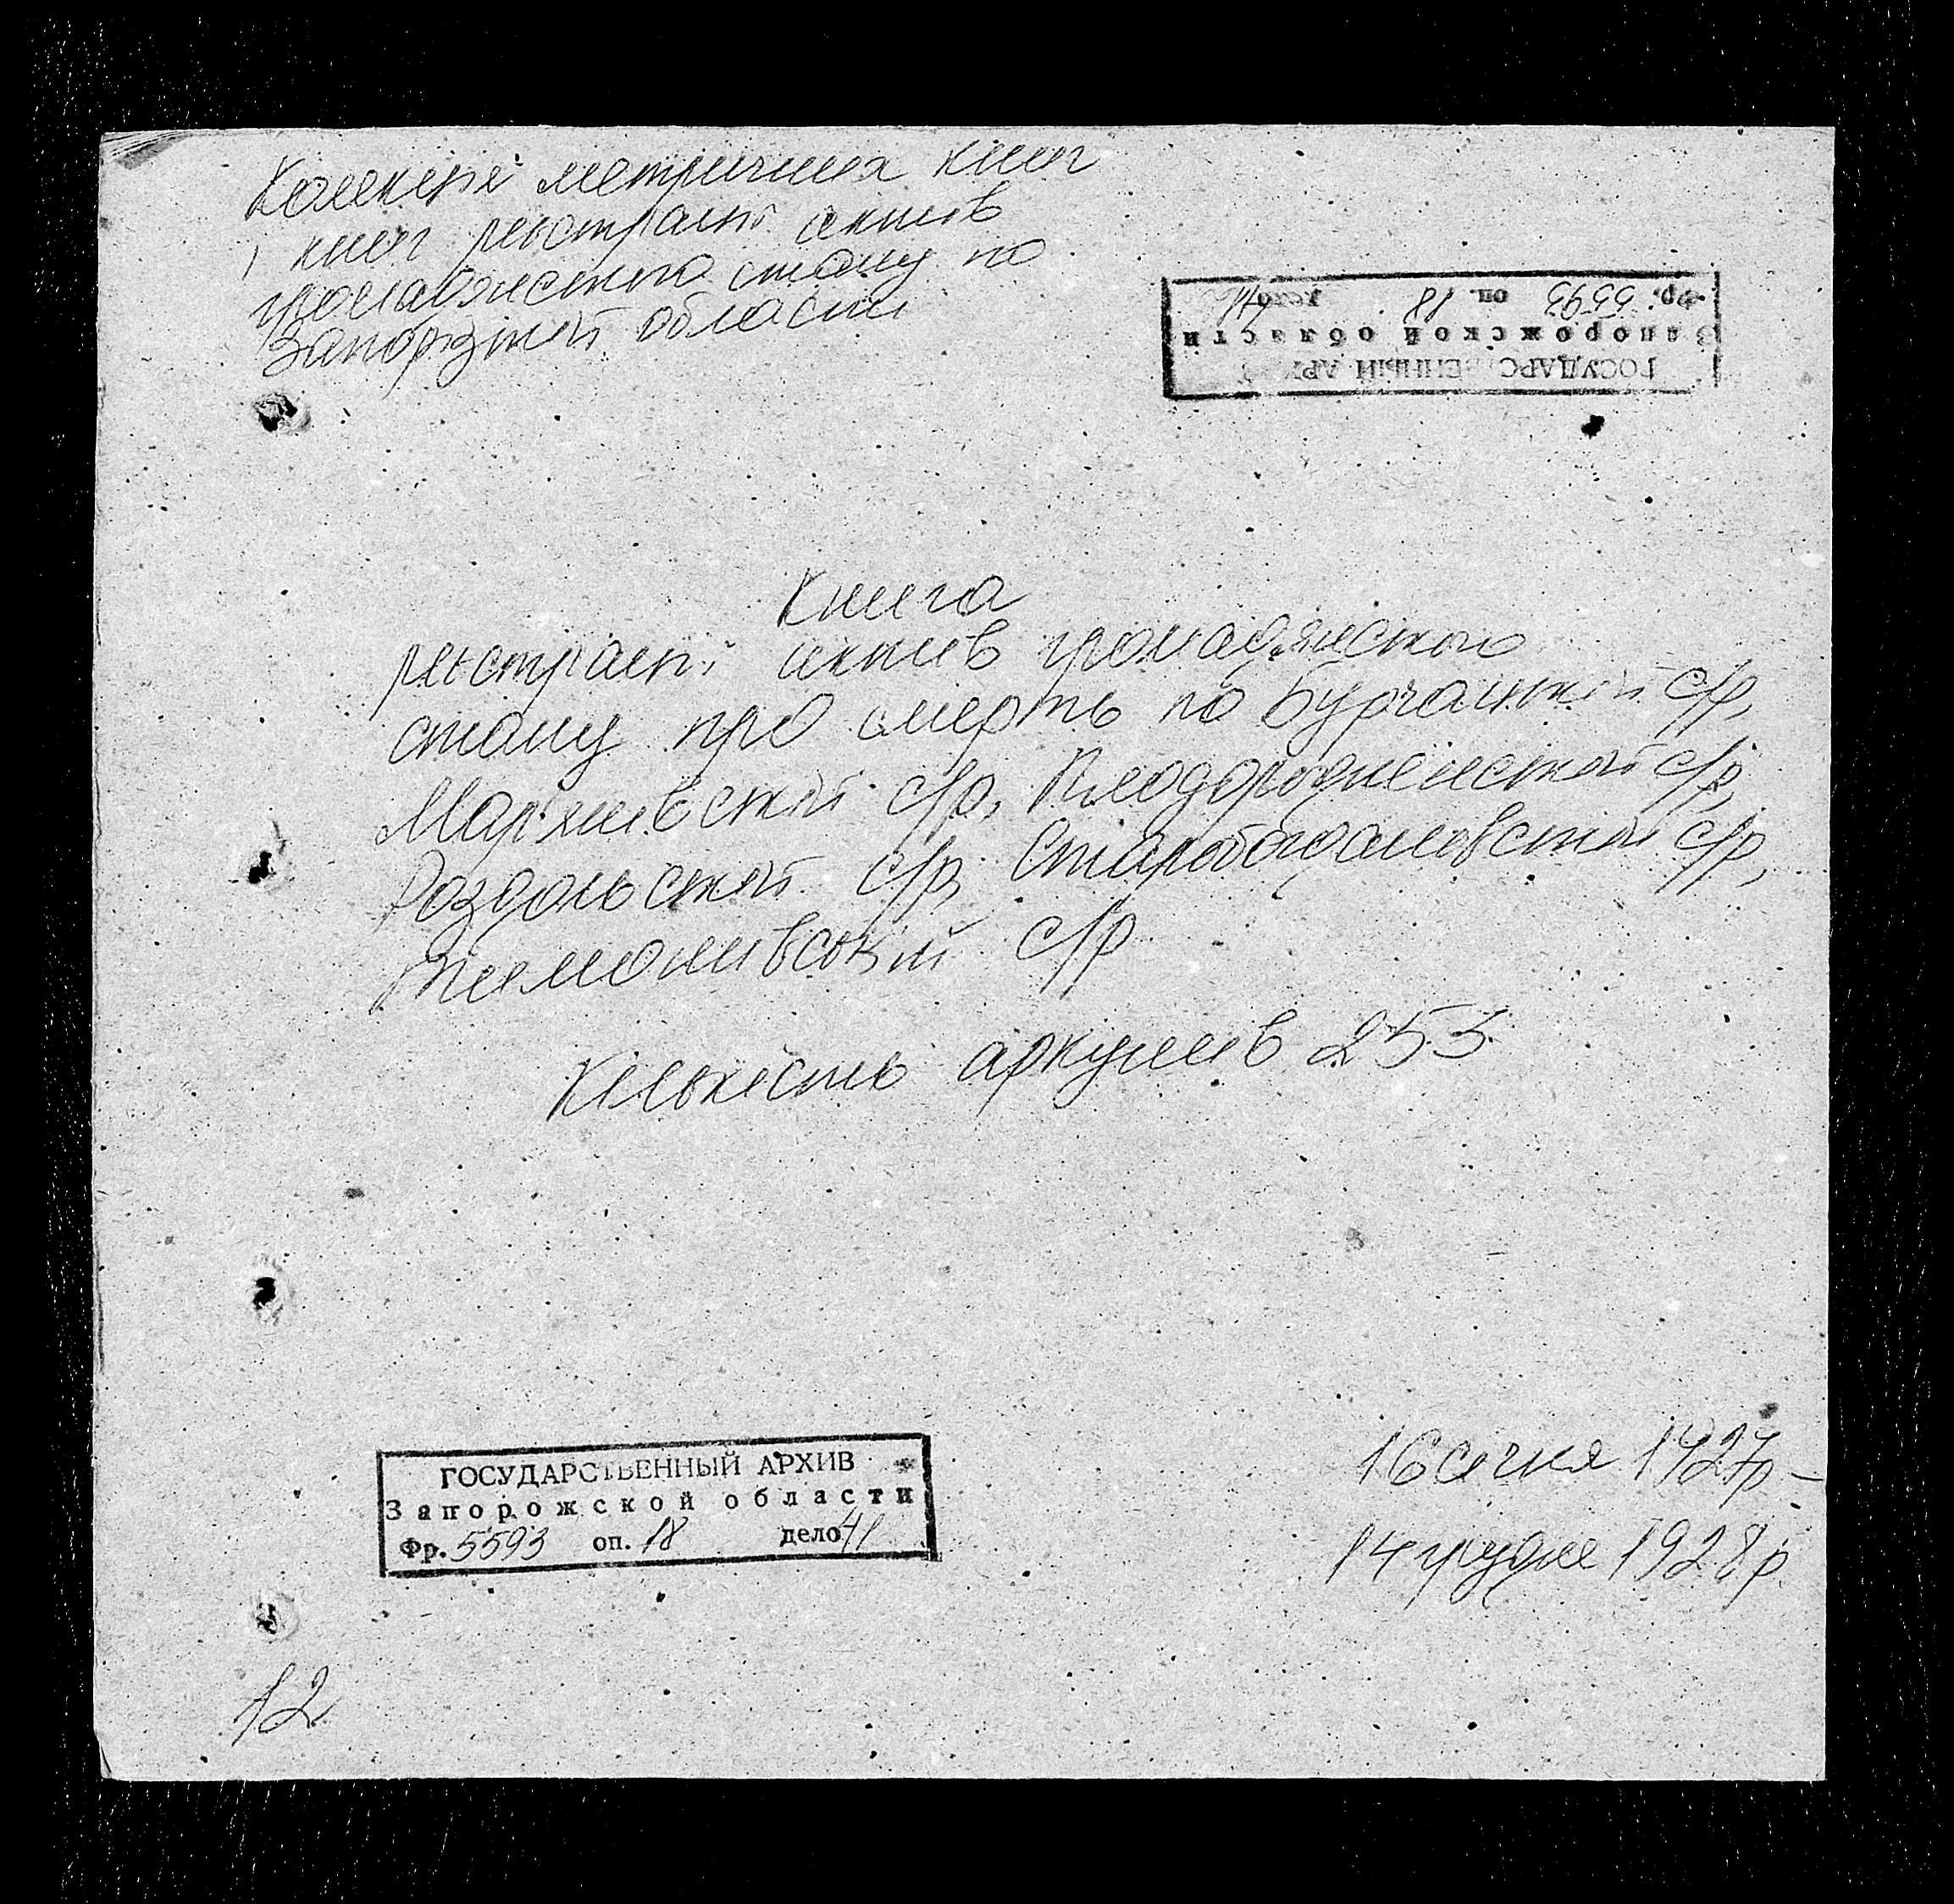 Колекція метричних книг
і книг реєстрації актів
громадянського стану по
Запорізькій області
Фр. 5593 оп. 18 дело 41
Запорожской области
ГОСУДАРСТВЕННЫЙ АРХИВ
Книга
реєстрації актів громадянського
стану про смерть по Бурчацькій с/р,
Мар'янівській с/р, Плодородненській с/р,
Роздольській с/р, Старобогданівській с/р,
с/р
Кількість аркушів 253
16 січня 1927р –
14 грудня 1928р.
ГОСУДАРСТВЕННЫЙ АРХИВ
Запорожской области
Фр. 5593 оп. 18 дело 41
12